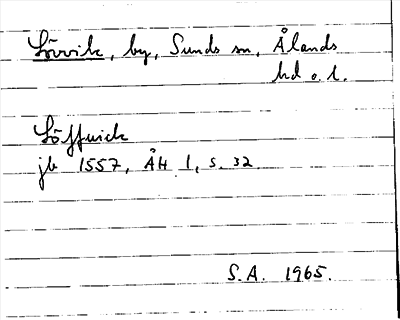 Lövvik, by, Sunds sn, Ålands
hd o. l.
Löffwick
jb 1557, ÅH 1, s. 32
S.A. 1965.